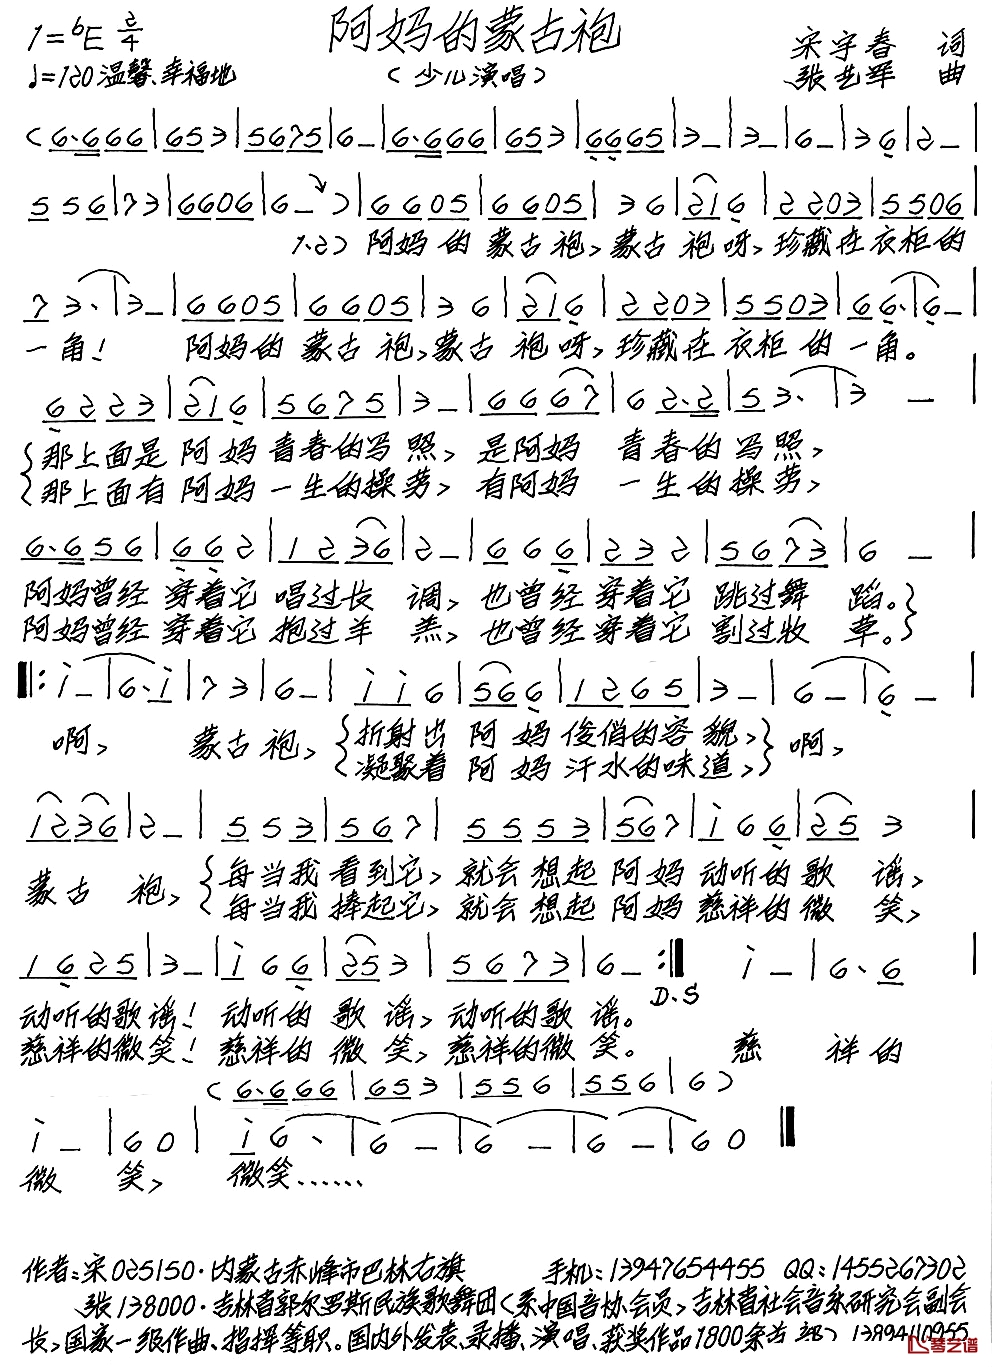 1=♭E 2/4
阿妈的蒙古袍
宋宇春 词
♩=120 温馨、幸福地
（少儿演唱）
张艺军 曲
(6·666|653|5675|6–|6·666|653|6665|3–|3–|6–|36|2–|
556|73|6606|6–)|6605|6605|36|216|2203|5506|
1.2）阿妈的蒙古袍，蒙古袍呀，珍藏在衣柜的
73·|3–|6605|6605|36|216|2203|5503|66·|6–|
一角！ 阿妈的蒙古袍，蒙古袍呀，珍藏在衣柜的一角。
6223|216|5675|3–|6667|62·2|53·|3–|
那上面是阿妈青春的写照，是阿妈青春的写照，
那上面有阿妈一生的操劳，有阿妈一生的操劳，
6·656|662|1236|2–|666|232|5673|6–|
阿妈曾经穿着它唱过长调，也曾经穿着它跳过舞蹈。
阿妈曾经穿着它抱过羊羔，也曾经穿着它割过牧草。
‖:i–|6·i|73|6–|ii6|566|1265|3–|6–|6–|
啊， 蒙古袍， 折射出阿妈俊俏的容貌， 啊，
凝聚着阿妈汗水的味道，
1236|2–|553|567|5553|567|i66|253|
蒙古袍， 每当我看到它，就会想起阿妈动听的歌谣，
每当我捧起它，就会想起阿妈慈祥的微笑，
1625|3–|i66|253|5673|6–:‖ i–|6·6|
D.S
动听的歌谣！动听的歌谣，动听的歌谣。
慈祥的微笑！慈祥的微笑，慈祥的微笑。 慈祥的
(6·666|653|556|556|6)
i–|60|i6·|6–|6–|6–|60‖
微笑， 微笑……
作者：宋025150·内蒙古赤峰市巴林右旗 手机：13947654455 QQ：1455267302
张138000·吉林省郭尔罗斯民族歌舞团（系中国音协会员，吉林省社会音乐研究会副会
长，国家一级作曲、指挥等职。国内外发表、录播、演唱、获奖作品1800余首 部） 13894110955
琴艺谱